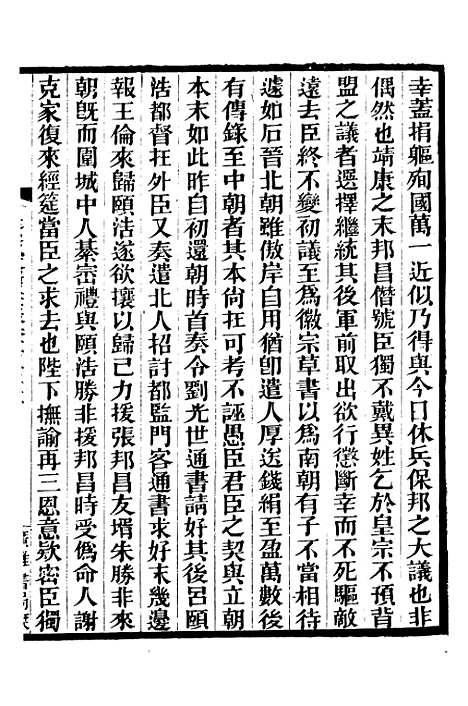 幸蓋捐軀殉國萬一近似乃得與今日休兵保邦之大議也非
偶然也靖康之末邦昌僭號臣獨不戴異姓乞於皇宗不預背
盟之議者選擇繼統其後軍前取出欲行懲斷幸而不死驅敵
遠去臣終不變初議至爲徽宗草書以爲南朝有子不當相待
遽如石晉北朝雖傲岸自用猶卽遣人厚送錢絹至盈萬數後
有傳錄至中朝者其本尙在可考不誣愚臣君臣之契與立朝
本末如此昨自初還朝時首奏令劉光世通書請好其後呂頤
浩都督在外臣又奏遣北人招討都監門客通書求好未幾邊
報王倫來歸頤浩遂欲攘以歸己力援張邦昌友壻朱勝非來
朝旣而圍城中人綦密禮與頤浩勝非援邦昌時受僞命人謝
克家復來經筵當臣之求去也陛下撫諭再三恩意欵密臣獨